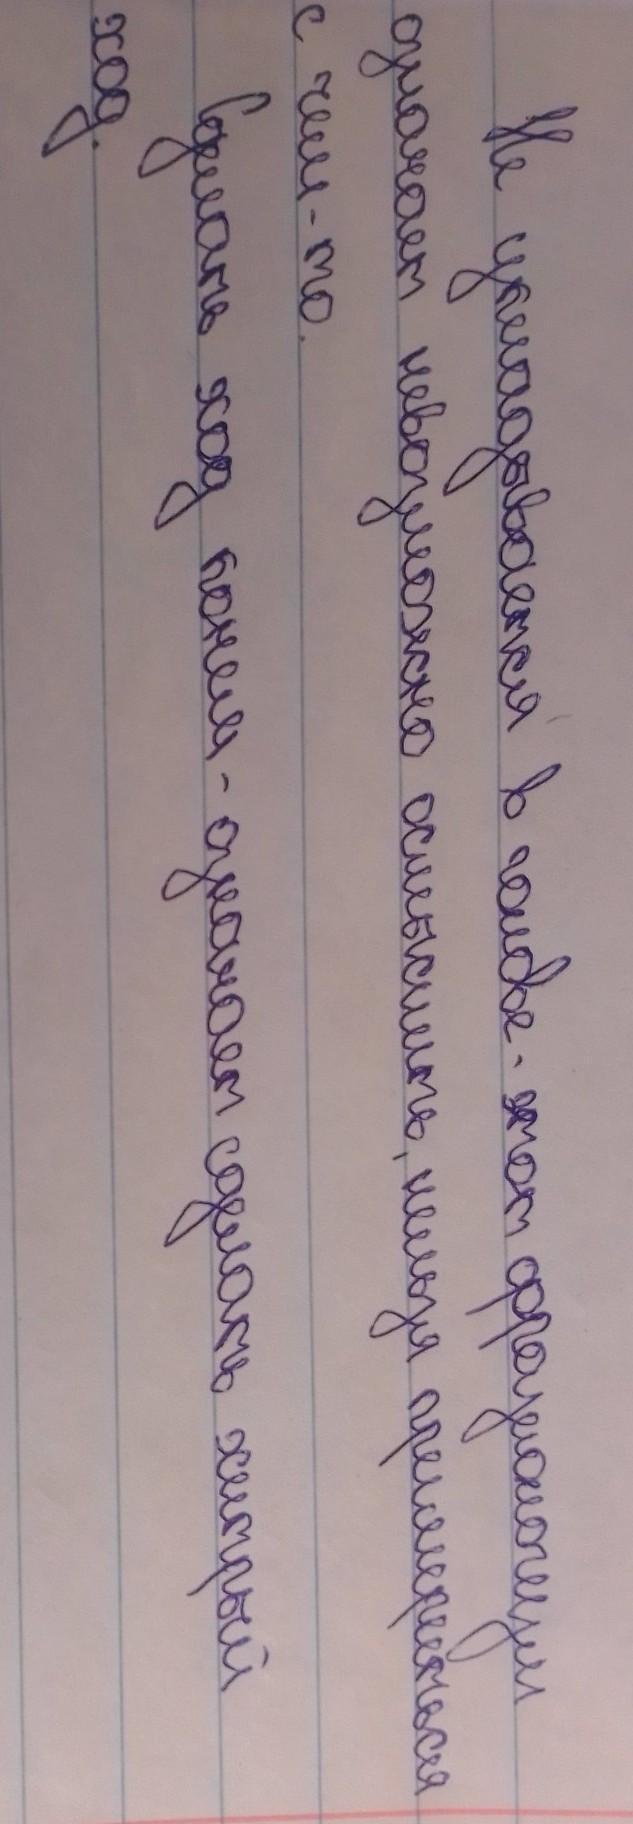 Не укладывается в голове - этот фразеологизм
означает невозможно осмыслить, нельзя примириться
с чем-то.
Сделать ход конем - означает сделать хитрый
ход.